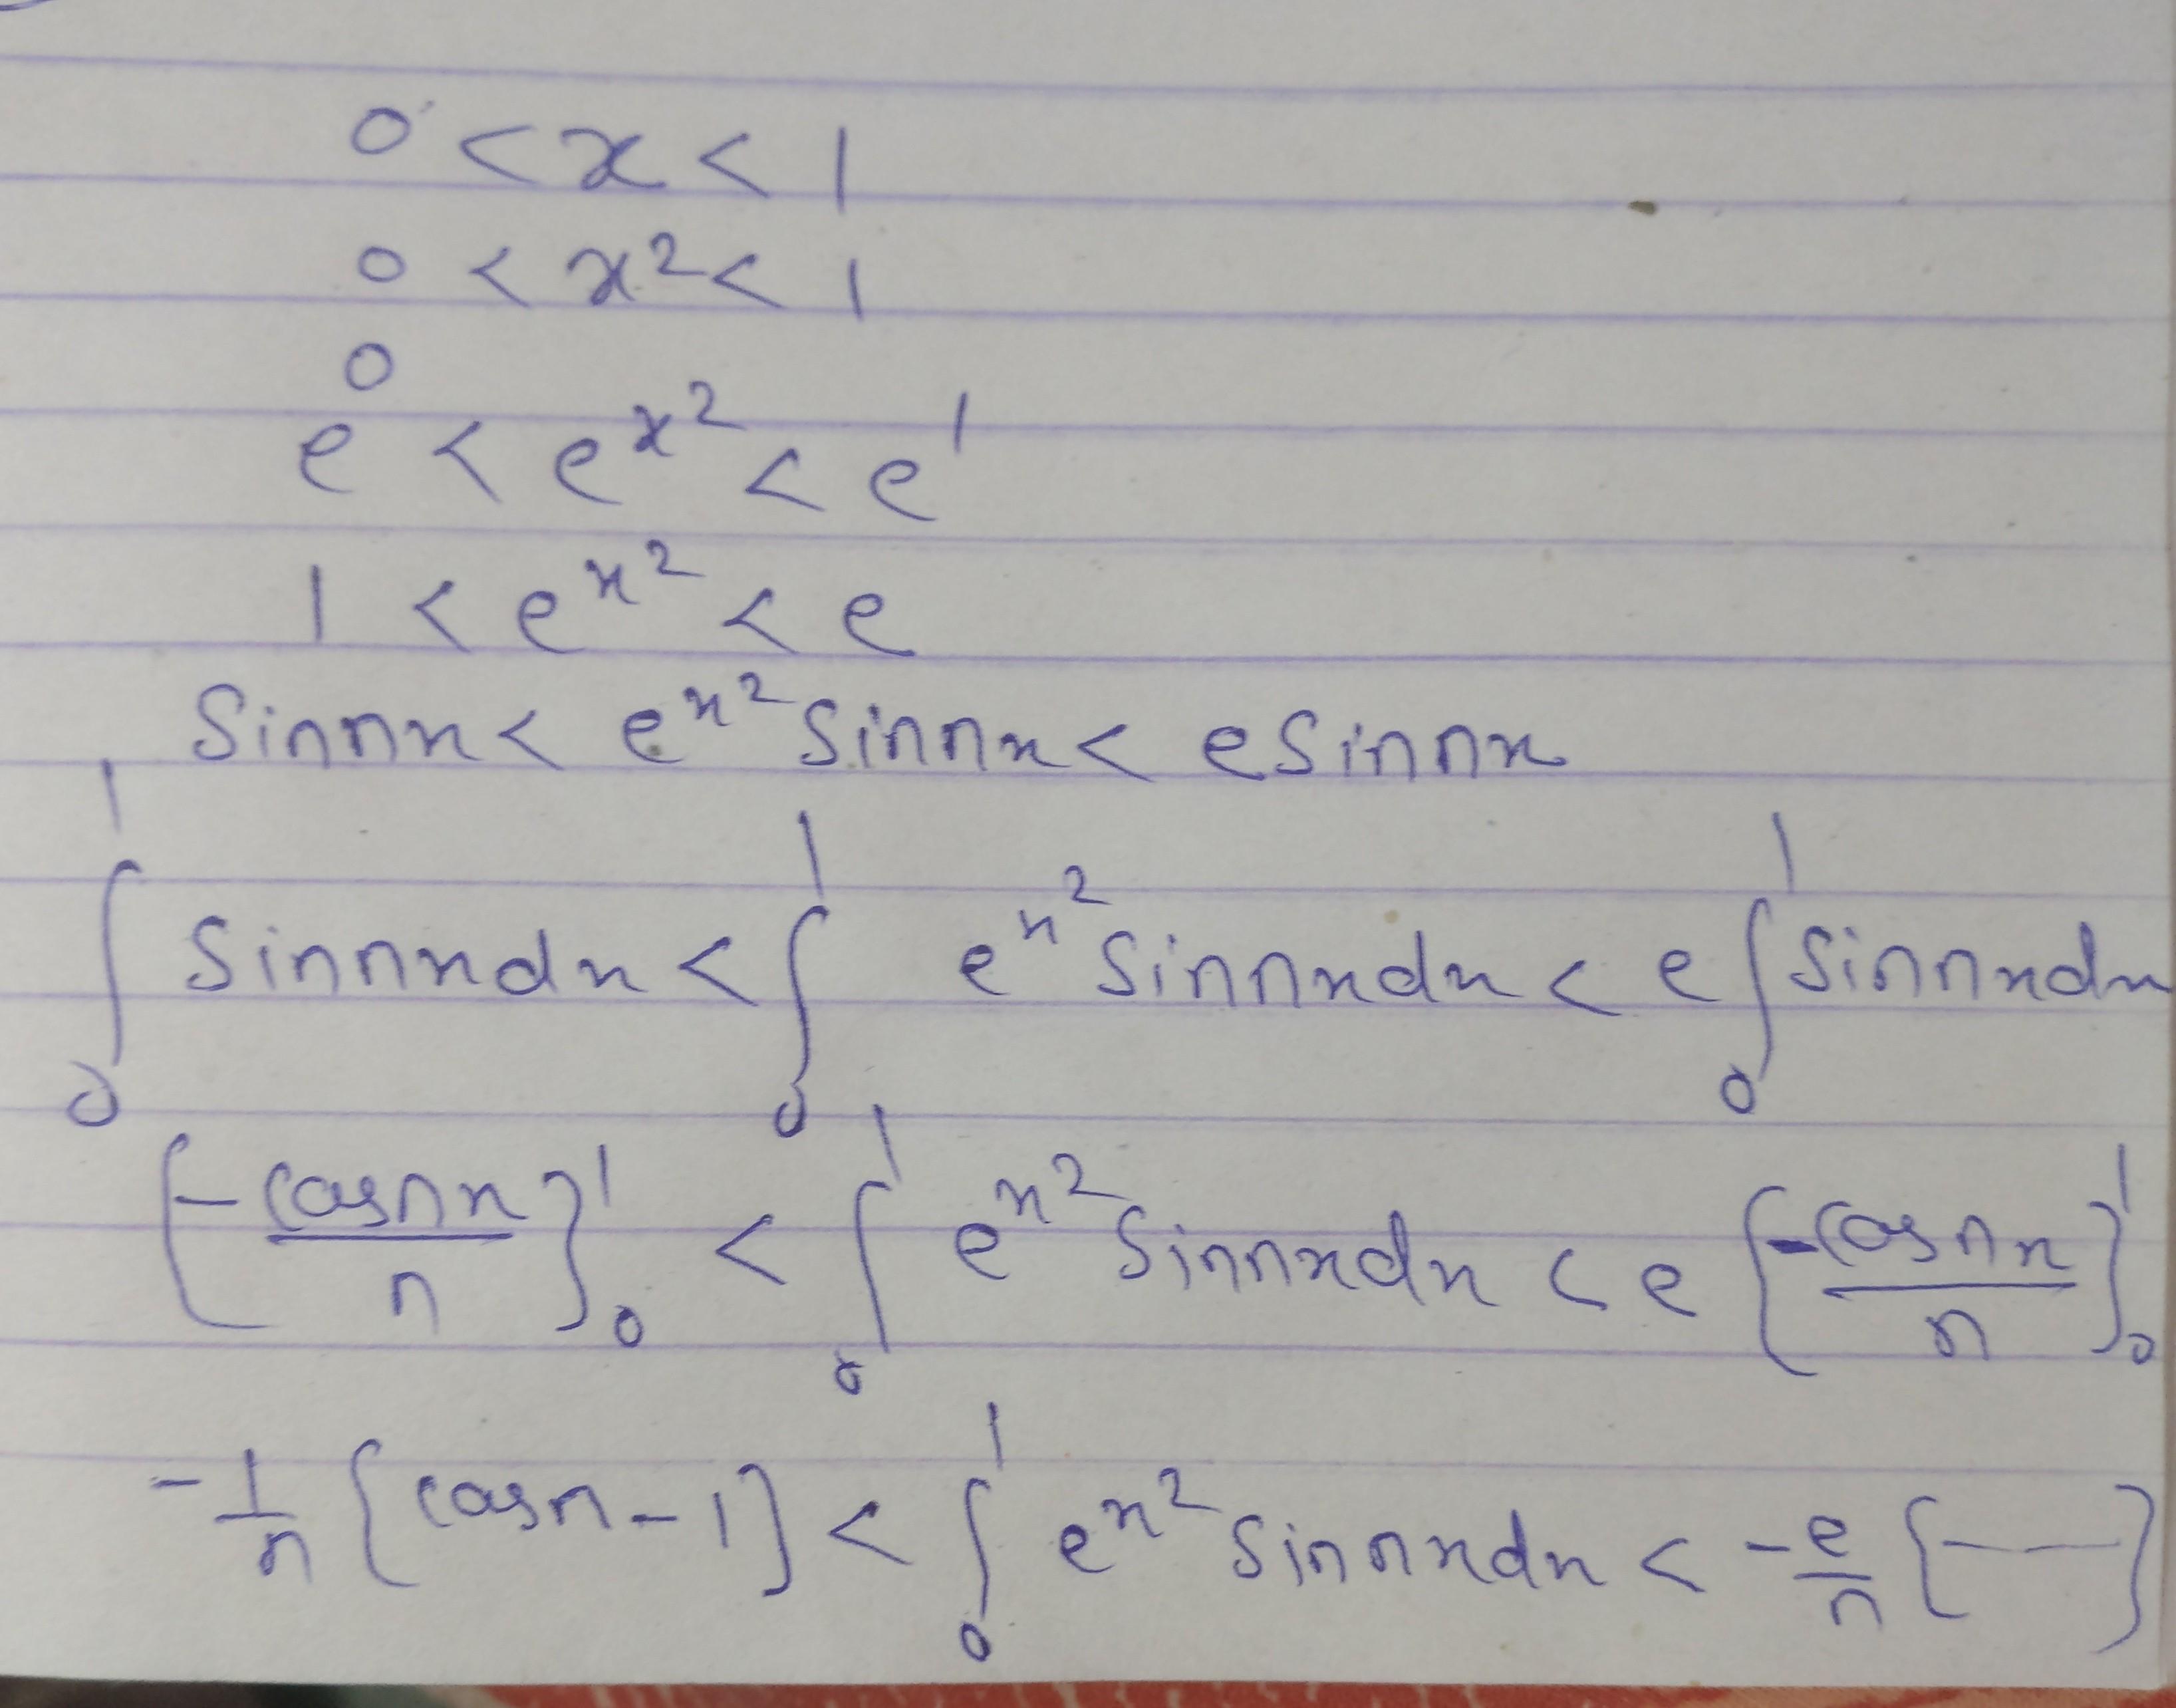 0 < x < 1
0 < x² < 1
e⁰ < e^x² < e¹
1 < e^x² < e
Sinnx < e^x² Sinnx < e Sinnx
∫₀¹ Sinnx dx < ∫₀¹ e^x² Sinnx dx < e ∫₀¹ Sinnx dx
[-cosnx/n]₀¹ < ∫₀¹ e^x² Sinnx dx < e [-cosnx/n]₀¹
-1/n [cosn - 1] < ∫₀¹ e^x² Sinnx dx < -e/n [— —]